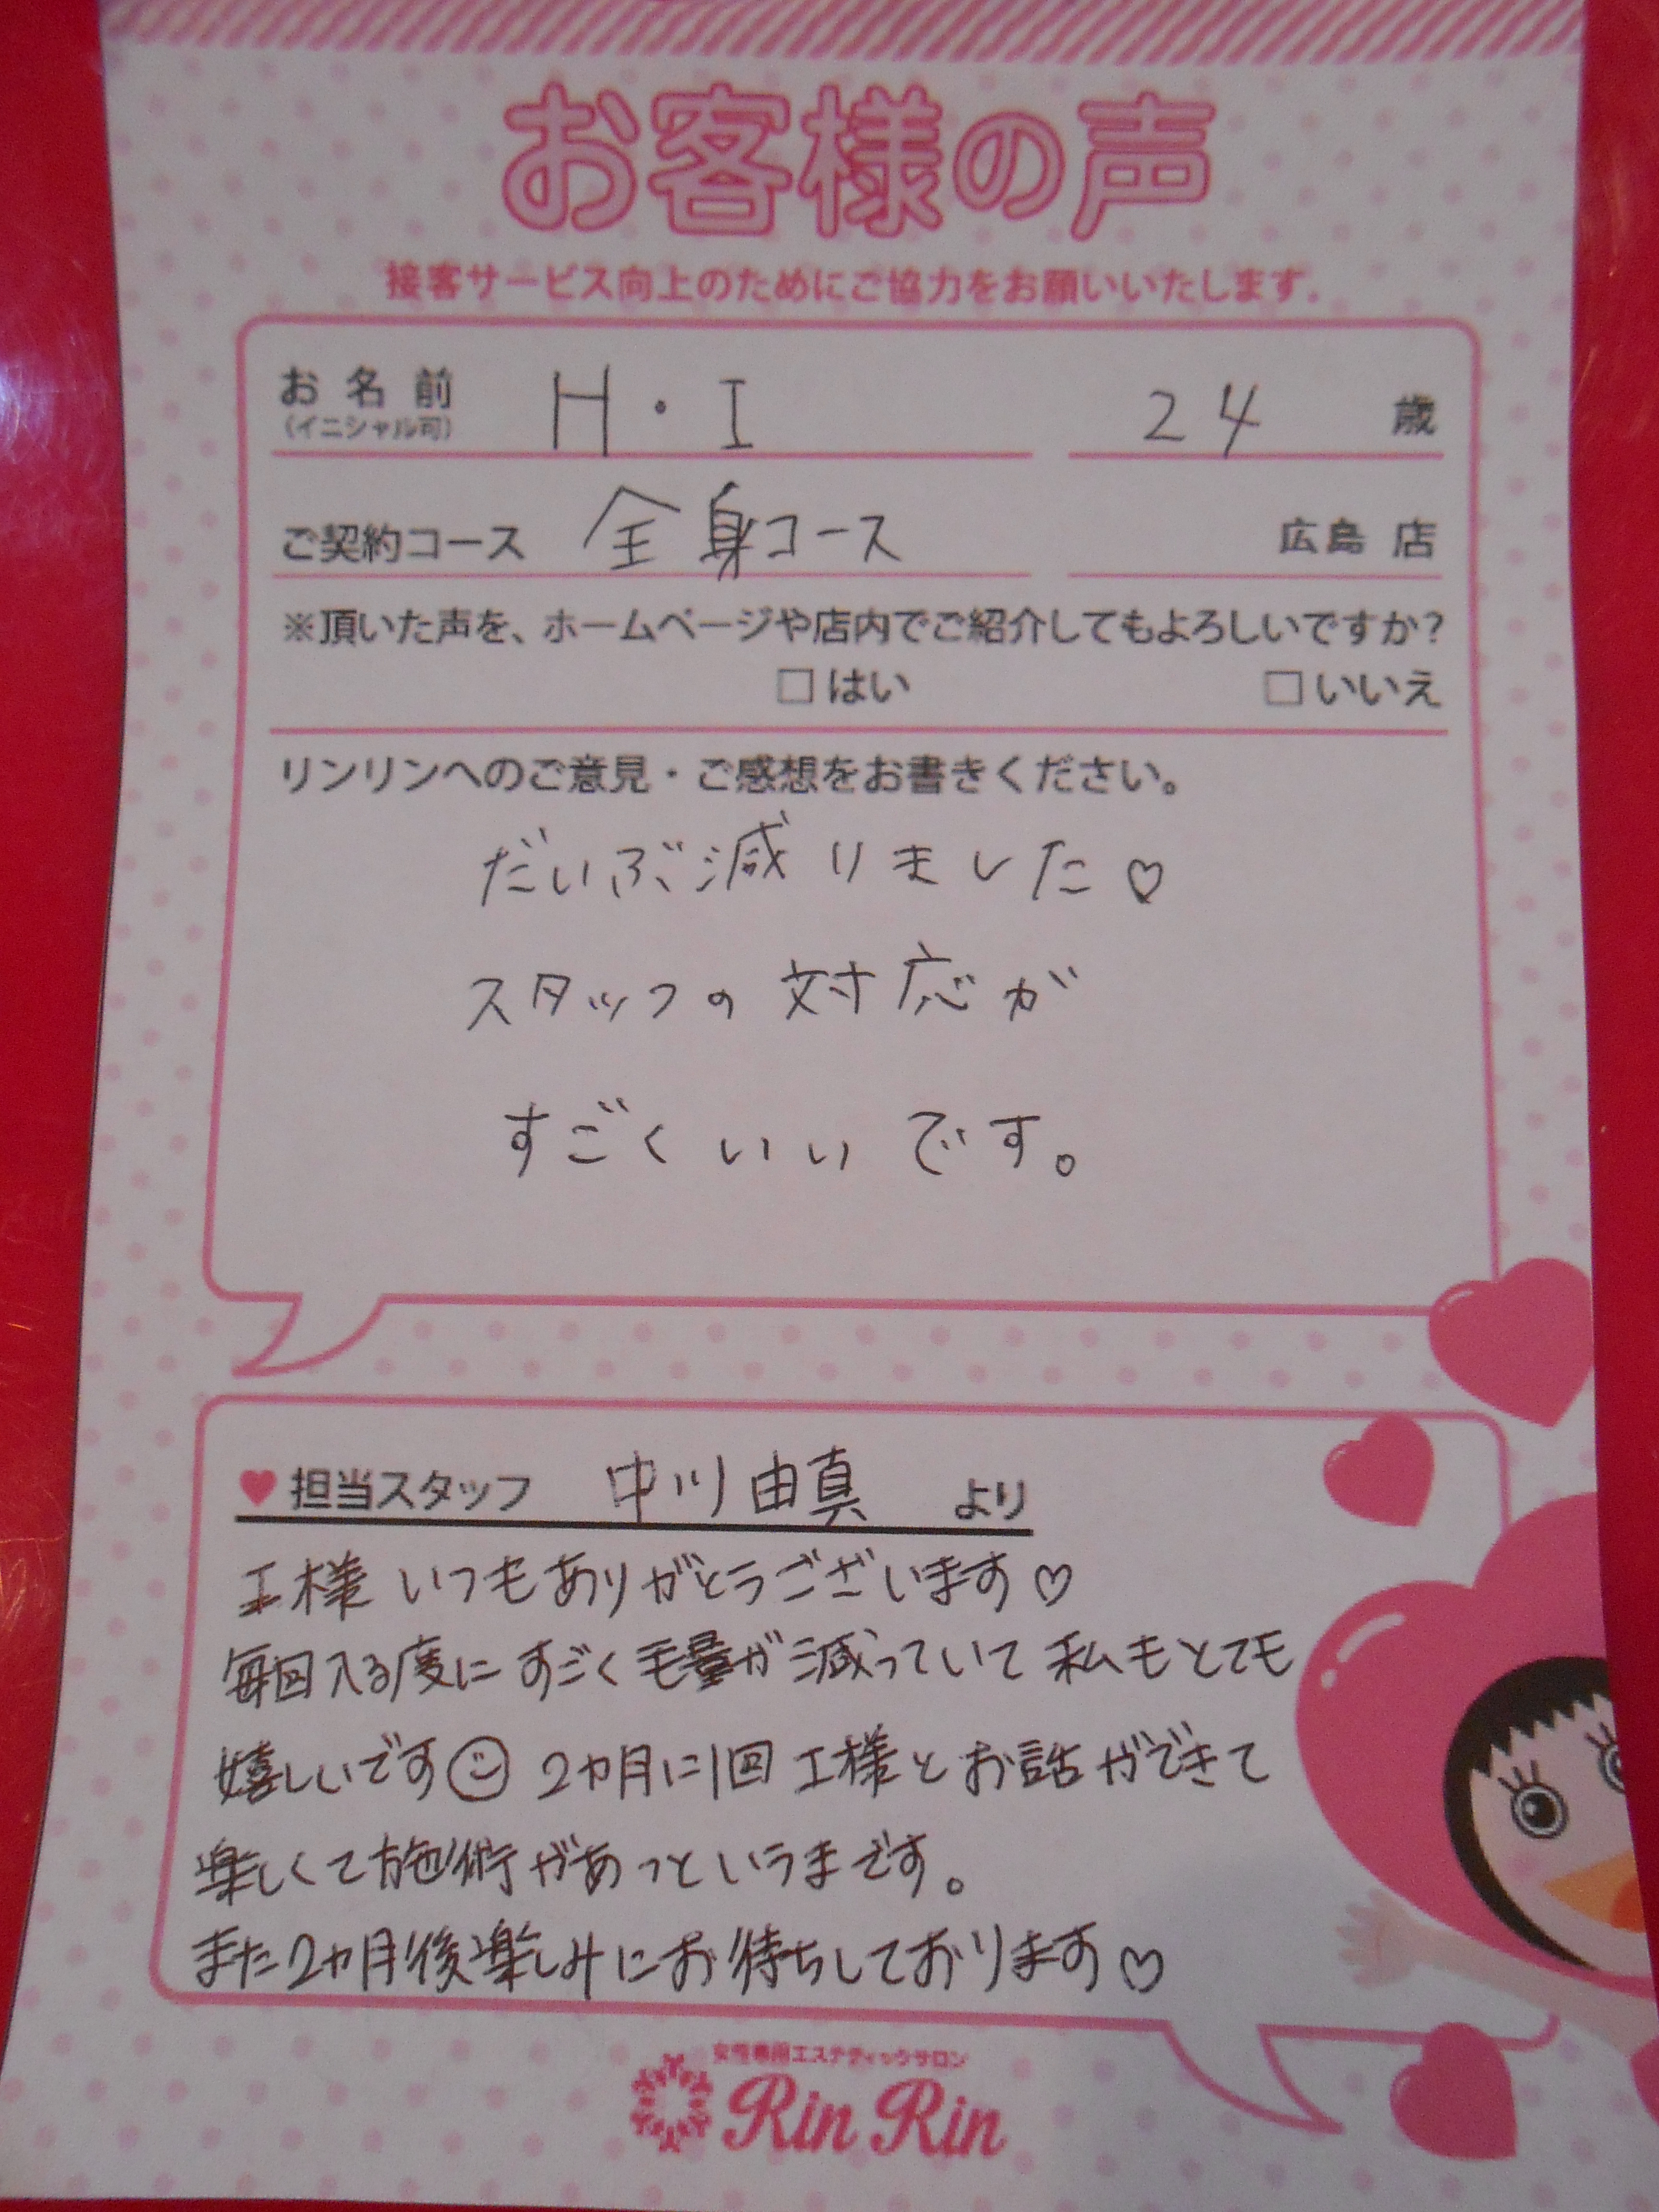 お客様の声
接客サービス向上のためにご協力をお願いいたします.
お名前 H・I 24 歳
(イニシャル可)
ご契約コース 全身コース 広島 店
※頂いた声を、ホームページや店内でご紹介してもよろしいですか?
□はい □いいえ
リンリンへのご意見・ご感想をお書きください。
だいぶ減りました♡
スタッフの対応が
すごくいいです。
♥担当スタッフ 中川由真 より
I様いつもありがとうございます♡
毎回入る度にすごく毛量が減っていて私もとても
嬉しいです☺ 2ヵ月に1回 I様とお話ができて
楽しくて施術があっというまです。
また2ヵ月後楽しみにお待ちしております♡
女性専用エステティックサロン
Rin Rin